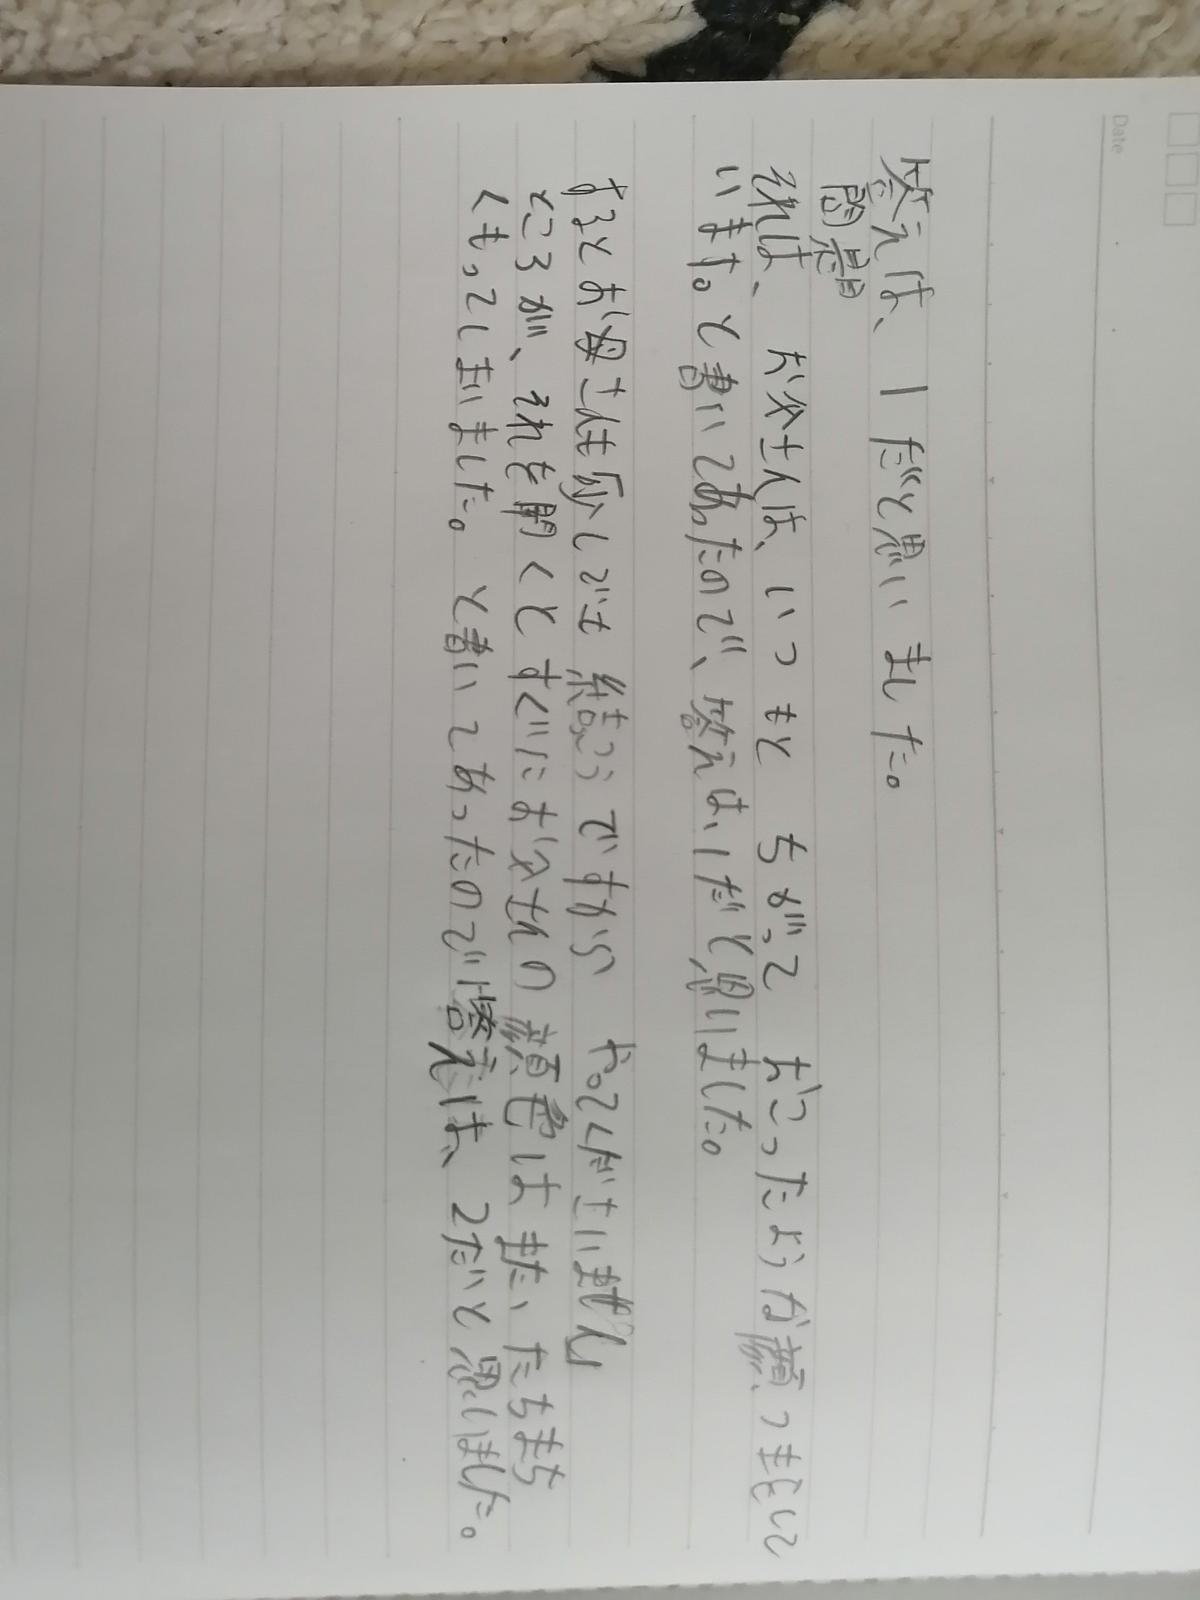 Date
答えは、1だと思いました。
問題
それは、お父さんは、いつもと ちがって おこったような顔つきをして
います。と書いてあったので、答えは、1だと思いました。
するとお母さんは尿しでも 結こうですから やってくださいませんか
ところが、それを聞くとすぐにお父さんの顔色はまた、たちまち
くもってしまいました。と書いてあったので答えは、2だと思いました。